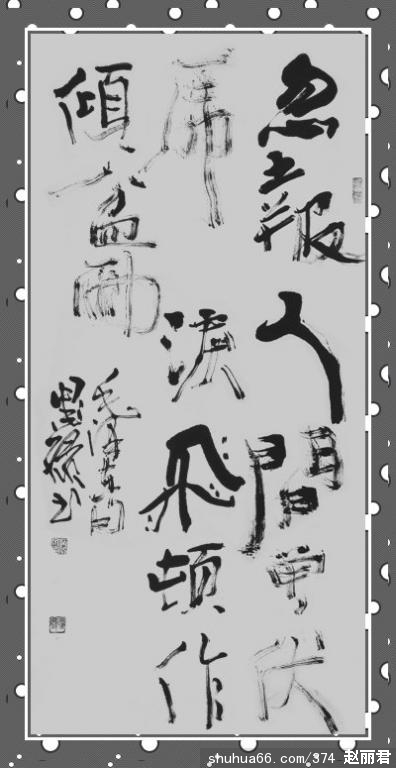 忽報人間曾伏
虎淚飛頓作
傾盆雨
毛泽东句
书
shuhua66.com/374 赵丽君